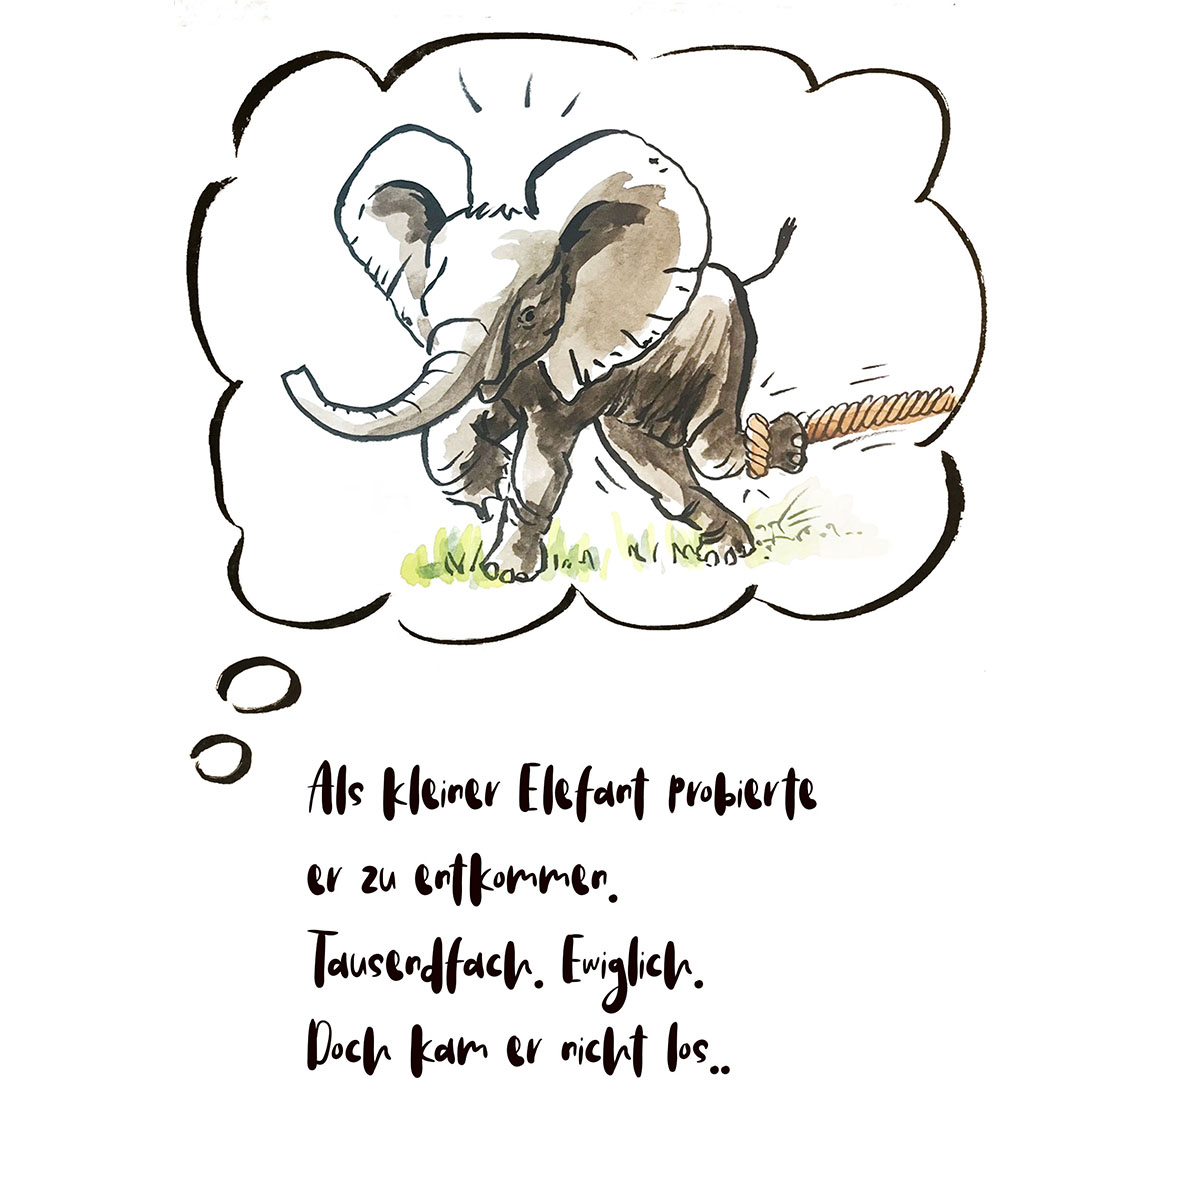 Als kleiner Elefant probierte
er zu entkommen.
Tausendfach. Ewiglich.
Doch kam er nicht los..